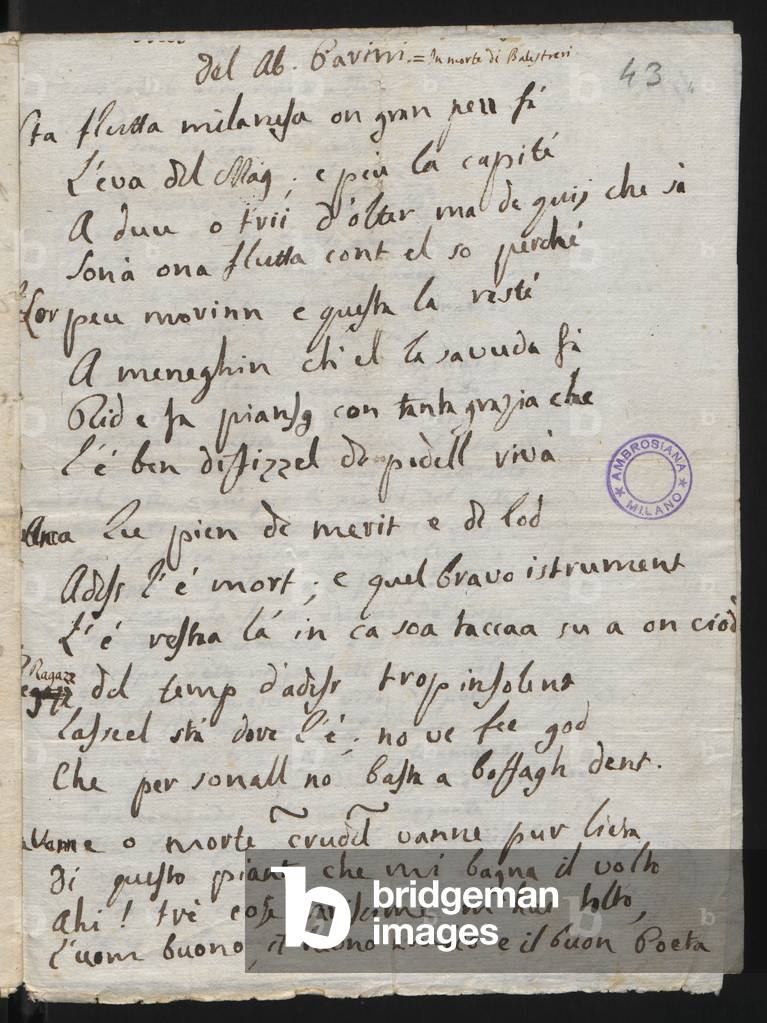 Del Ab. Parini. = In morte di Balestreri
43
Sta flutta milanesa on gran pezz fà
L'eva del Mag; e peu la capité
A duu o trii d'olter ma de quij che sà
Sonà ona flutta cont el so perché
Lor peu morinn e questa la resté
A meneghin ch'el la savuda fà
Rid e fa piansg con tanta grazia che
L'é ben difizzel de podell rivà
Anca Lu pien de merit e de lod
Adess l'é mort; e quel bravo istrument
L'é restaa lá in ca soa taccaa su a on ciod
Ragazz
del temp d'adess trop insolent
Lasseel stá dove l'é; no ve fee god
Che per sonall no basta a boffagh dent.
Vanne o morte crudel vanne pur lieta
Di questo pianto che mi bagna il volto
Ahi! trè cose m'hai tolto,
L'uom buono, il buono e il buon Poeta
AMBROSIANA
MILANO
bridgeman
images